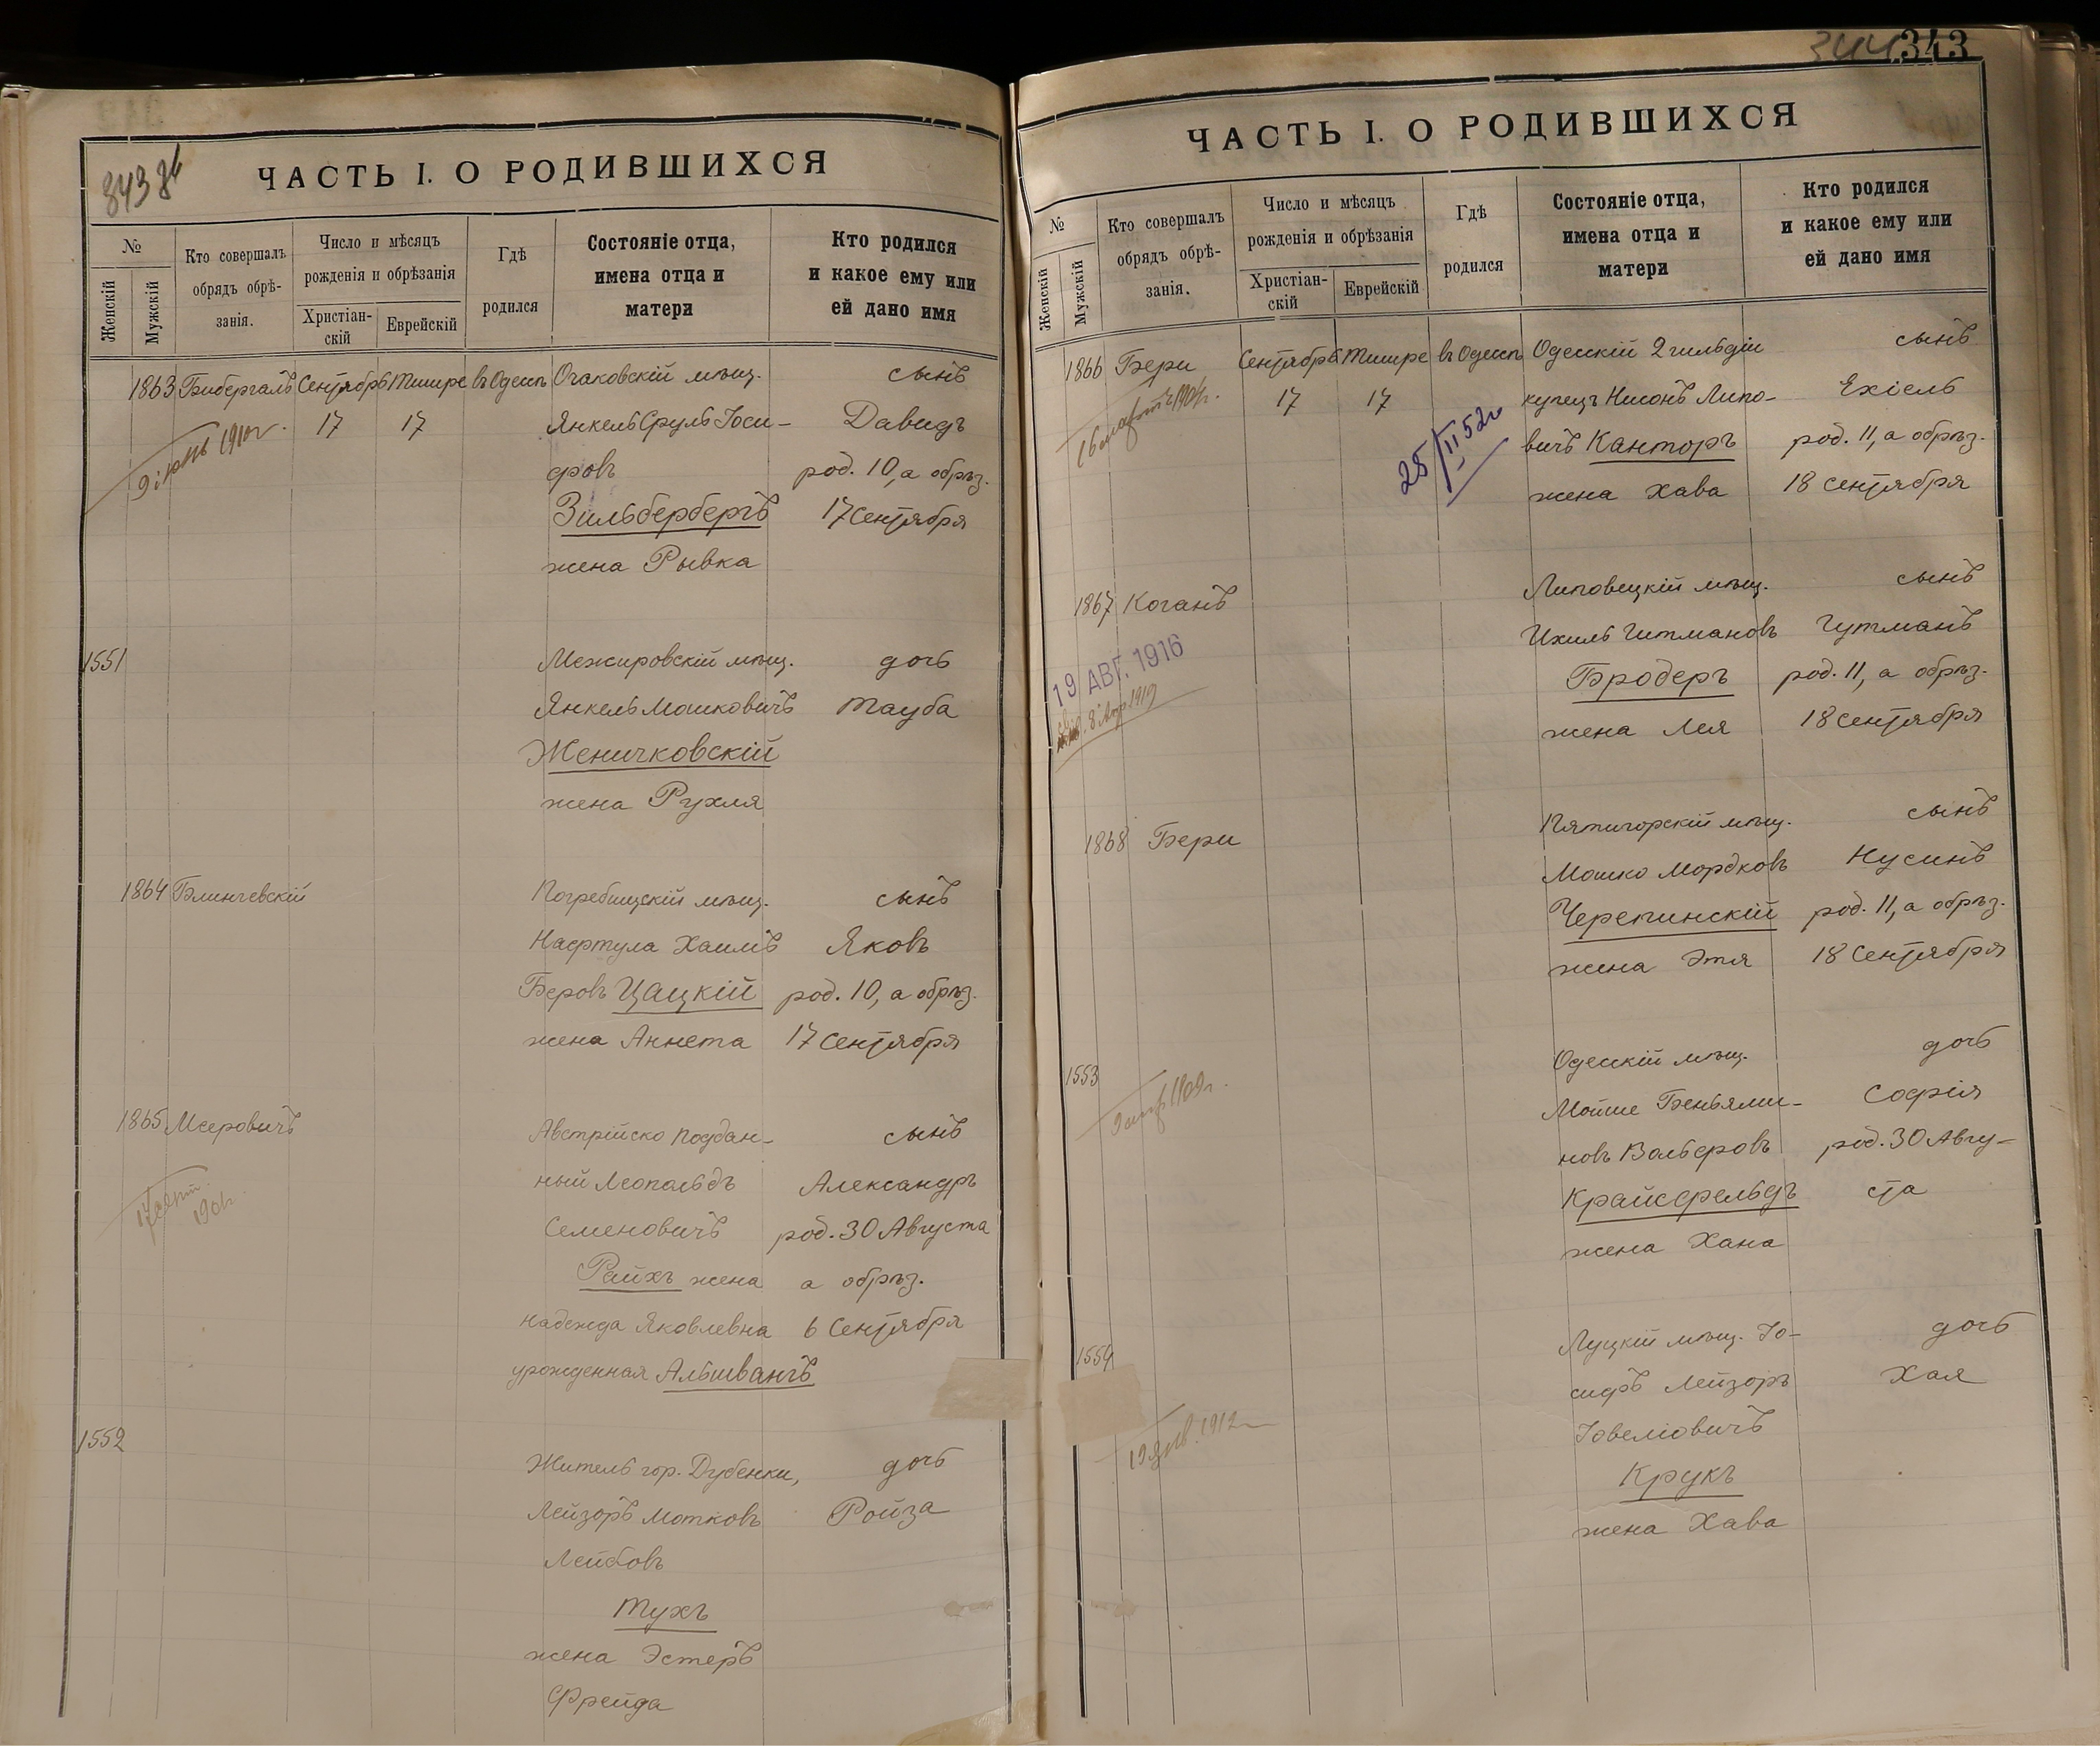 343
ЧАСТЬ I. О РОДИВШИХСЯ
№
Женскій
Мужскій
Кто совершалъ
обрядъ обрѣ-
занія.
Число и мѣсяцъ
рожденія и обрѣзанія
Христіан-
скій
Еврейскій
Гдѣ
родился
Состояніе отца,
имена отца и
матери
Кто родился
и какое ему или
ей дано имя
1863 Бибергалъ Сентябрь Тишре въ Одессѣ Очаковскій мѣщ. сынъ
17 17 Янкель Сруль Іоси- Давидъ
1910 г.
фовъ род. 10, а обрѣз.
Зильбербергъ 17 Сентября
жена Рывка
1551 Межировскій мѣщ. дочь
Янкель Мошковичъ Тауба
Женичковскій
жена Рухля
1864 Блинчевскій Погребищскій мѣщ. сынъ
Нафтула Хаимъ Яковъ
Беровъ Цацкій род. 10, а обрѣз.
жена Аннета 17 Сентября
1865 Мееровичъ Австрійско поддан- сынъ
ный Леопольдъ Александръ
Семеновичъ род. 30 Августа
Райхъ жена а обрѣз.
Надежда Яковлевна 6 Сентября
урожденная Альшвангъ
1552 Житель гор. Дубенки, дочь
Лейзоръ Мотковъ Ройза
Лейбовъ
Тухъ
жена Эстеръ
Фрейда
344 343
ЧАСТЬ I. О РОДИВШИХСЯ
№
Женскій
Мужскій
Кто совершалъ
обрядъ обрѣ-
занія.
Число и мѣсяцъ
рожденія и обрѣзанія
Христіан-
скій
Еврейскій
Гдѣ
родился
Состояніе отца,
имена отца и
матери
Кто родился
и какое ему или
ей дано имя
1866 Бери Сентябрь Тишре въ Одессѣ Одесскій 2 гильдіи сынъ
17 17 купецъ Нисонъ Липо- Ехіель
25/II 52 г
вичъ Канторъ род. 11, а обрѣз.
жена Хава 18 Сентября
1867 Коганъ Липовецкій мѣщ. сынъ
Ихиль Гитмановъ Гутманъ
19 АВГ. 1916
Бродеръ род. 11, а обрѣз.
жена Лея 18 Сентября
1868 Бери Пятигорскій мѣщ. сынъ
Мошко Мордковъ Нусинъ
Черепинскій род. 11, а обрѣз.
жена Этя 18 Сентября
1553 Одесскій мѣщ. дочь
1909 г.
Мойше Беньями- Софія
новъ Вольфовъ род. 30 Авгу-
Крайсфельдъ ста
жена Хана
1554 Луцкій мѣщ. Іо- дочь
сифъ Лейзоръ Хая
19 янв. 1912
Іовеліовичъ
Крукъ
жена Хава